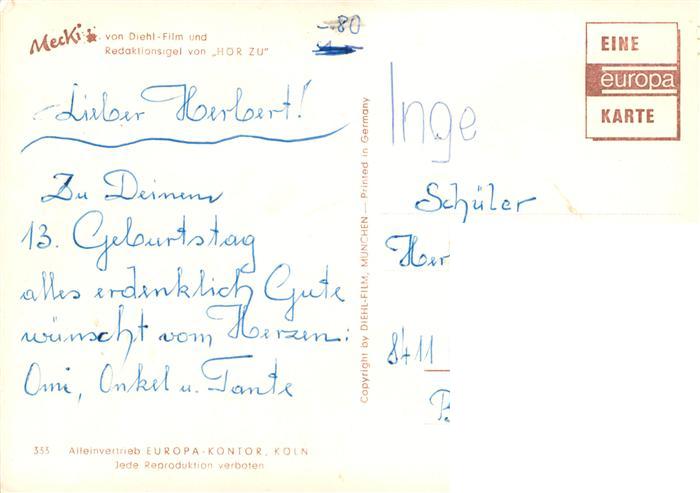 Mecki von Diehl-Film und
Redaktionsigel von „HÖR ZU"
-.80
EINE
europa
KARTE
Lieber Herbert!
Inge
Zu Deinem
13. Geburtstag
alles erdenklich Gute
wünscht vom Herzen:
Omi, Onkel u. Tante
Schüler
Her
8411
Copyright by DIEHL-FILM, MÜNCHEN — Printed in Germany
353 Alleinvertrieb EUROPA-KONTOR, KÖLN
Jede Reproduktion verboten